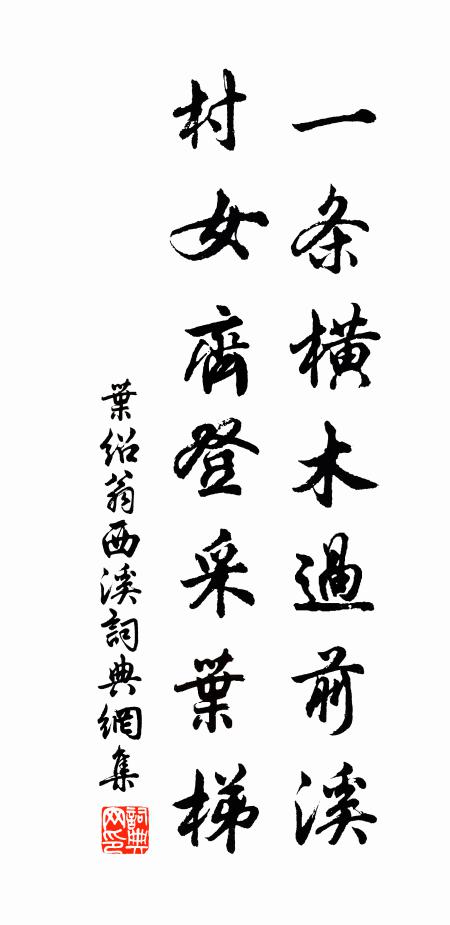 一条橫木過前溪
村女齊登采葉梯
葉紹翁西溪詞典網集
詞典网印